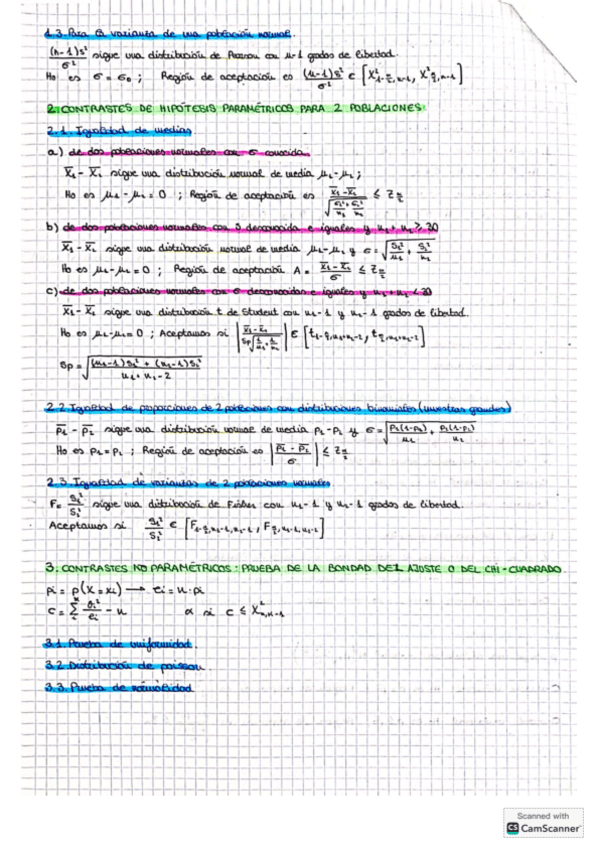 1.3. Para la varianza de una población normal.
(n-1)s²/σ² sigue una distribución de Pearson con n-1 grados de libertad.
Ho es σ = σ₀ ; Región de aceptación es (n-1)s²/σ² ∈ [X²₁₋α/₂,n-1, X²α/₂,n-1]
2. CONTRASTES DE HIPÓTESIS PARAMÉTRICOS PARA 2 POBLACIONES.
2.1. Igualdad de medias
a) de dos poblaciones normales con σ conocida
X̄₁ - X̄₂ sigue una distribución normal de media μ₁-μ₂ ;
Ho es μ₁-μ₂ = 0 ; Región de aceptación es (X̄₁-X̄₂)/√(σ₁²/n₁ + σ₂²/n₂) ≤ Z α/2
b) de dos poblaciones normales con σ desconocida e iguales y n₁ + n₂ ≥ 30
X̄₁ - X̄₂ sigue una distribución normal de media μ₁-μ₂ y σ = √(S₁²/n₁ + S₂²/n₂)
Ho es μ₁-μ₂ = 0 ; Región de aceptación A = (X̄₁-X̄₂)/σ ≤ Z α/2
c) de dos poblaciones normales con σ desconocidas e iguales y n₁ + n₂ < 30
X̄₁ - X̄₂ sigue una distribución t de Student con n₁-1 y n₂-1 grados de libertad.
Ho es μ₁-μ₂ = 0 ; Aceptamos si |(X̄₁-X̄₂)/(Sp√(1/n₁ + 1/n₂))| ∈ [t₁₋α/₂,n₁+n₂-2, tα/₂,n₁+n₂-2]
Sp = √(((n₁-1)S₁² + (n₂-1)S₂²)/(n₁+n₂-2))
2.2 Igualdad de proporciones de 2 poblaciones con distribuciones binomiales (muestras grandes)
p̄₁ - p̄₂ sigue una distribución normal de media p₁-p₂ y σ = √(p₁(1-p₁)/n₁ + p₂(1-p₂)/n₂)
Ho es p₁ = p₂ ; Región de aceptación es |(p̄₁ - p̄₂)/σ| ≤ Z α/2
2.3. Igualdad de varianzas de 2 poblaciones normales
F = S₁²/S₂² sigue una distribución de Fisher con n₁-1 y n₂-1 grados de libertad.
Aceptamos si S₁²/S₂² ∈ [F₁₋α/₂,n₁-1,n₂-1, Fα/₂,n₁-1,n₂-1]
3. CONTRASTES NO PARAMÉTRICOS: PRUEBA DE LA BONDAD DEL AJUSTE O DEL CHI-CUADRADO
pi = p(X = xi) → ei = n·pi
C = Σ oi²/ei - n α si C ≤ X²α,k-1
3.1. Prueba de uniformidad.
3.2. Distribución de poisson.
3.3. Prueba de normalidad
Scanned with
CS CamScanner